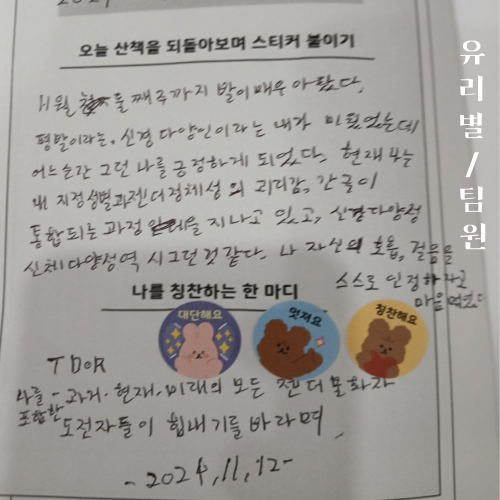 오늘 산책을 되돌아보며 스티커 붙이기
11월 둘째주까지 발이 매우 아팠다.
평발이라는, 신경다양인이라는 내가 미웠었는데
어느순간 그런 나를 긍정하게 되었다. 현재 나는
내 지정성별과 젠더정체성의 괴리감, 간극이
통합되는 과정을 지나고 있고, 신경다양성
신체다양성 역시 그런 것 같다. 나 자신의 호흡, 걸음을
스스로 인정하자고
마음먹었다
나를 칭찬하는 한 마디
대단해요
멋져요
칭찬해요
TDoR
나를 포함한 - 과거·현재·미래의 모든 젠더
도전자들이 힘내기를 바라며,
-2024.11.12-
유리별/팀원